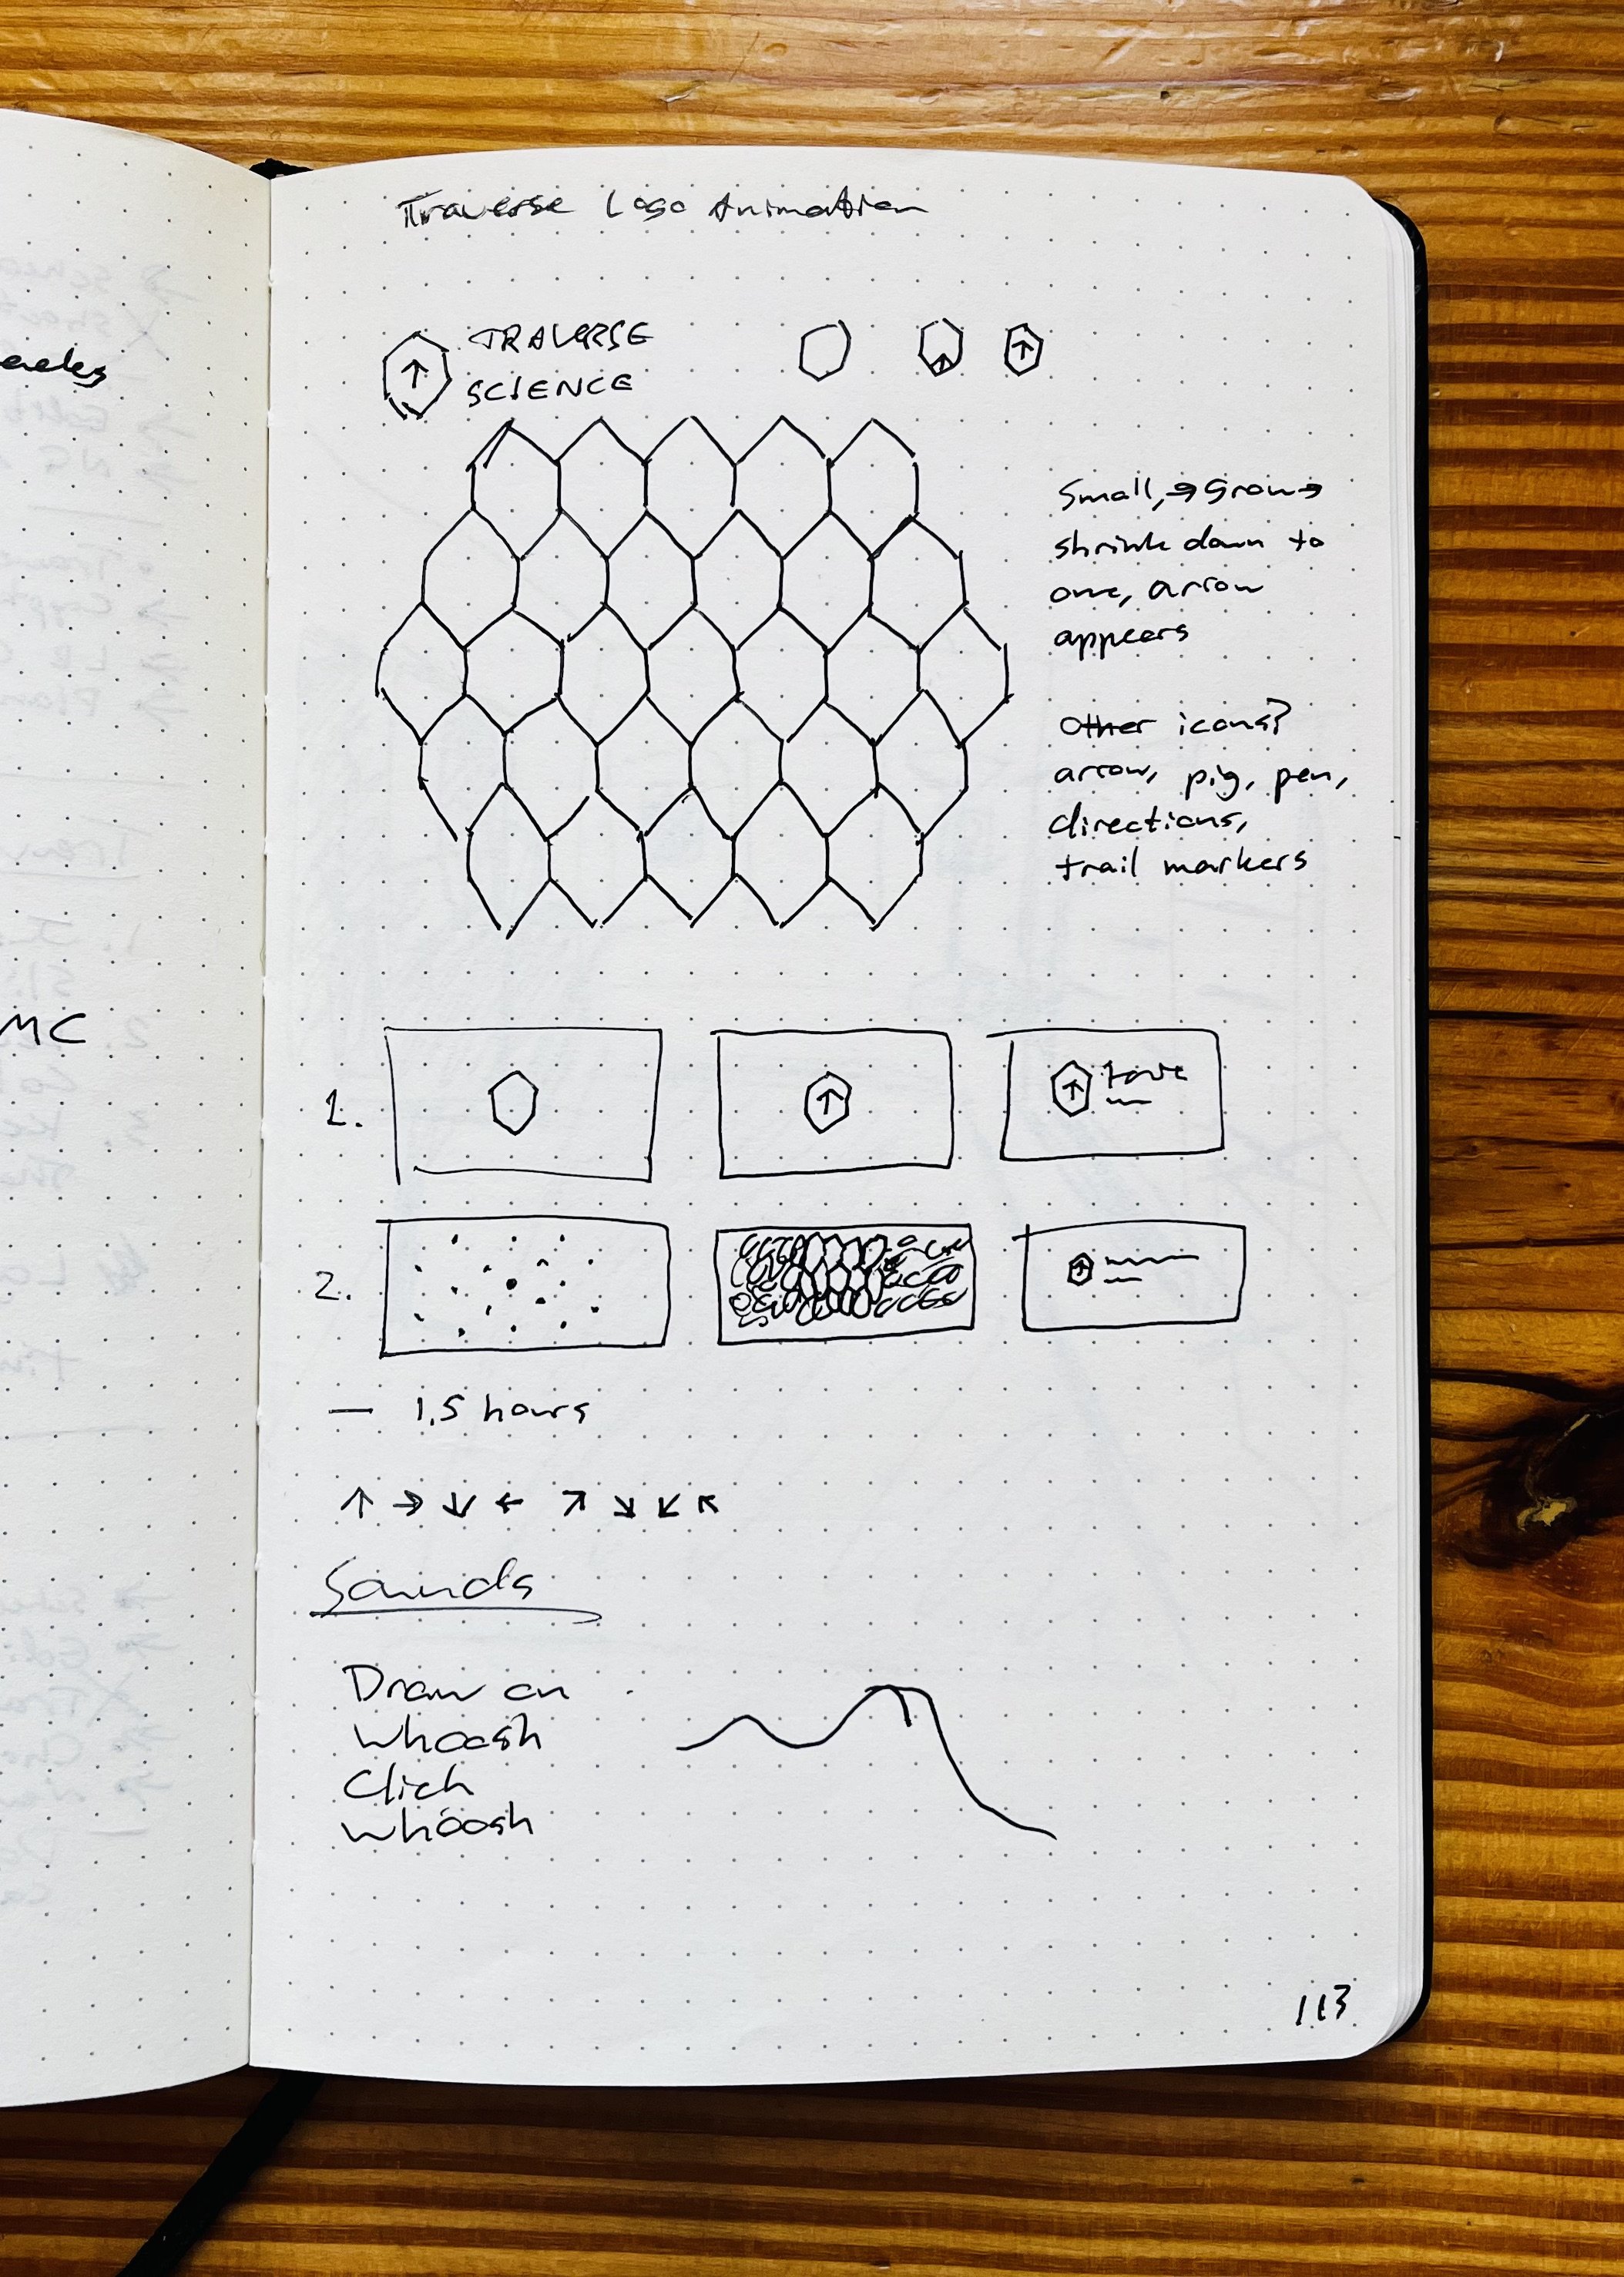 Traverse Logo Animation
TRAVERSE
SCIENCE
Small, → Grow →
shrink down to
one, arrow
appears
Other icons?
arrow, pig, pen,
directions,
trail markers
1.
2.
— 1.5 hours
↑ → ↓ ← ↗ ↘ ↙ ↖
Sounds
Draw on
Whoosh
Click
Whoosh
113
MC